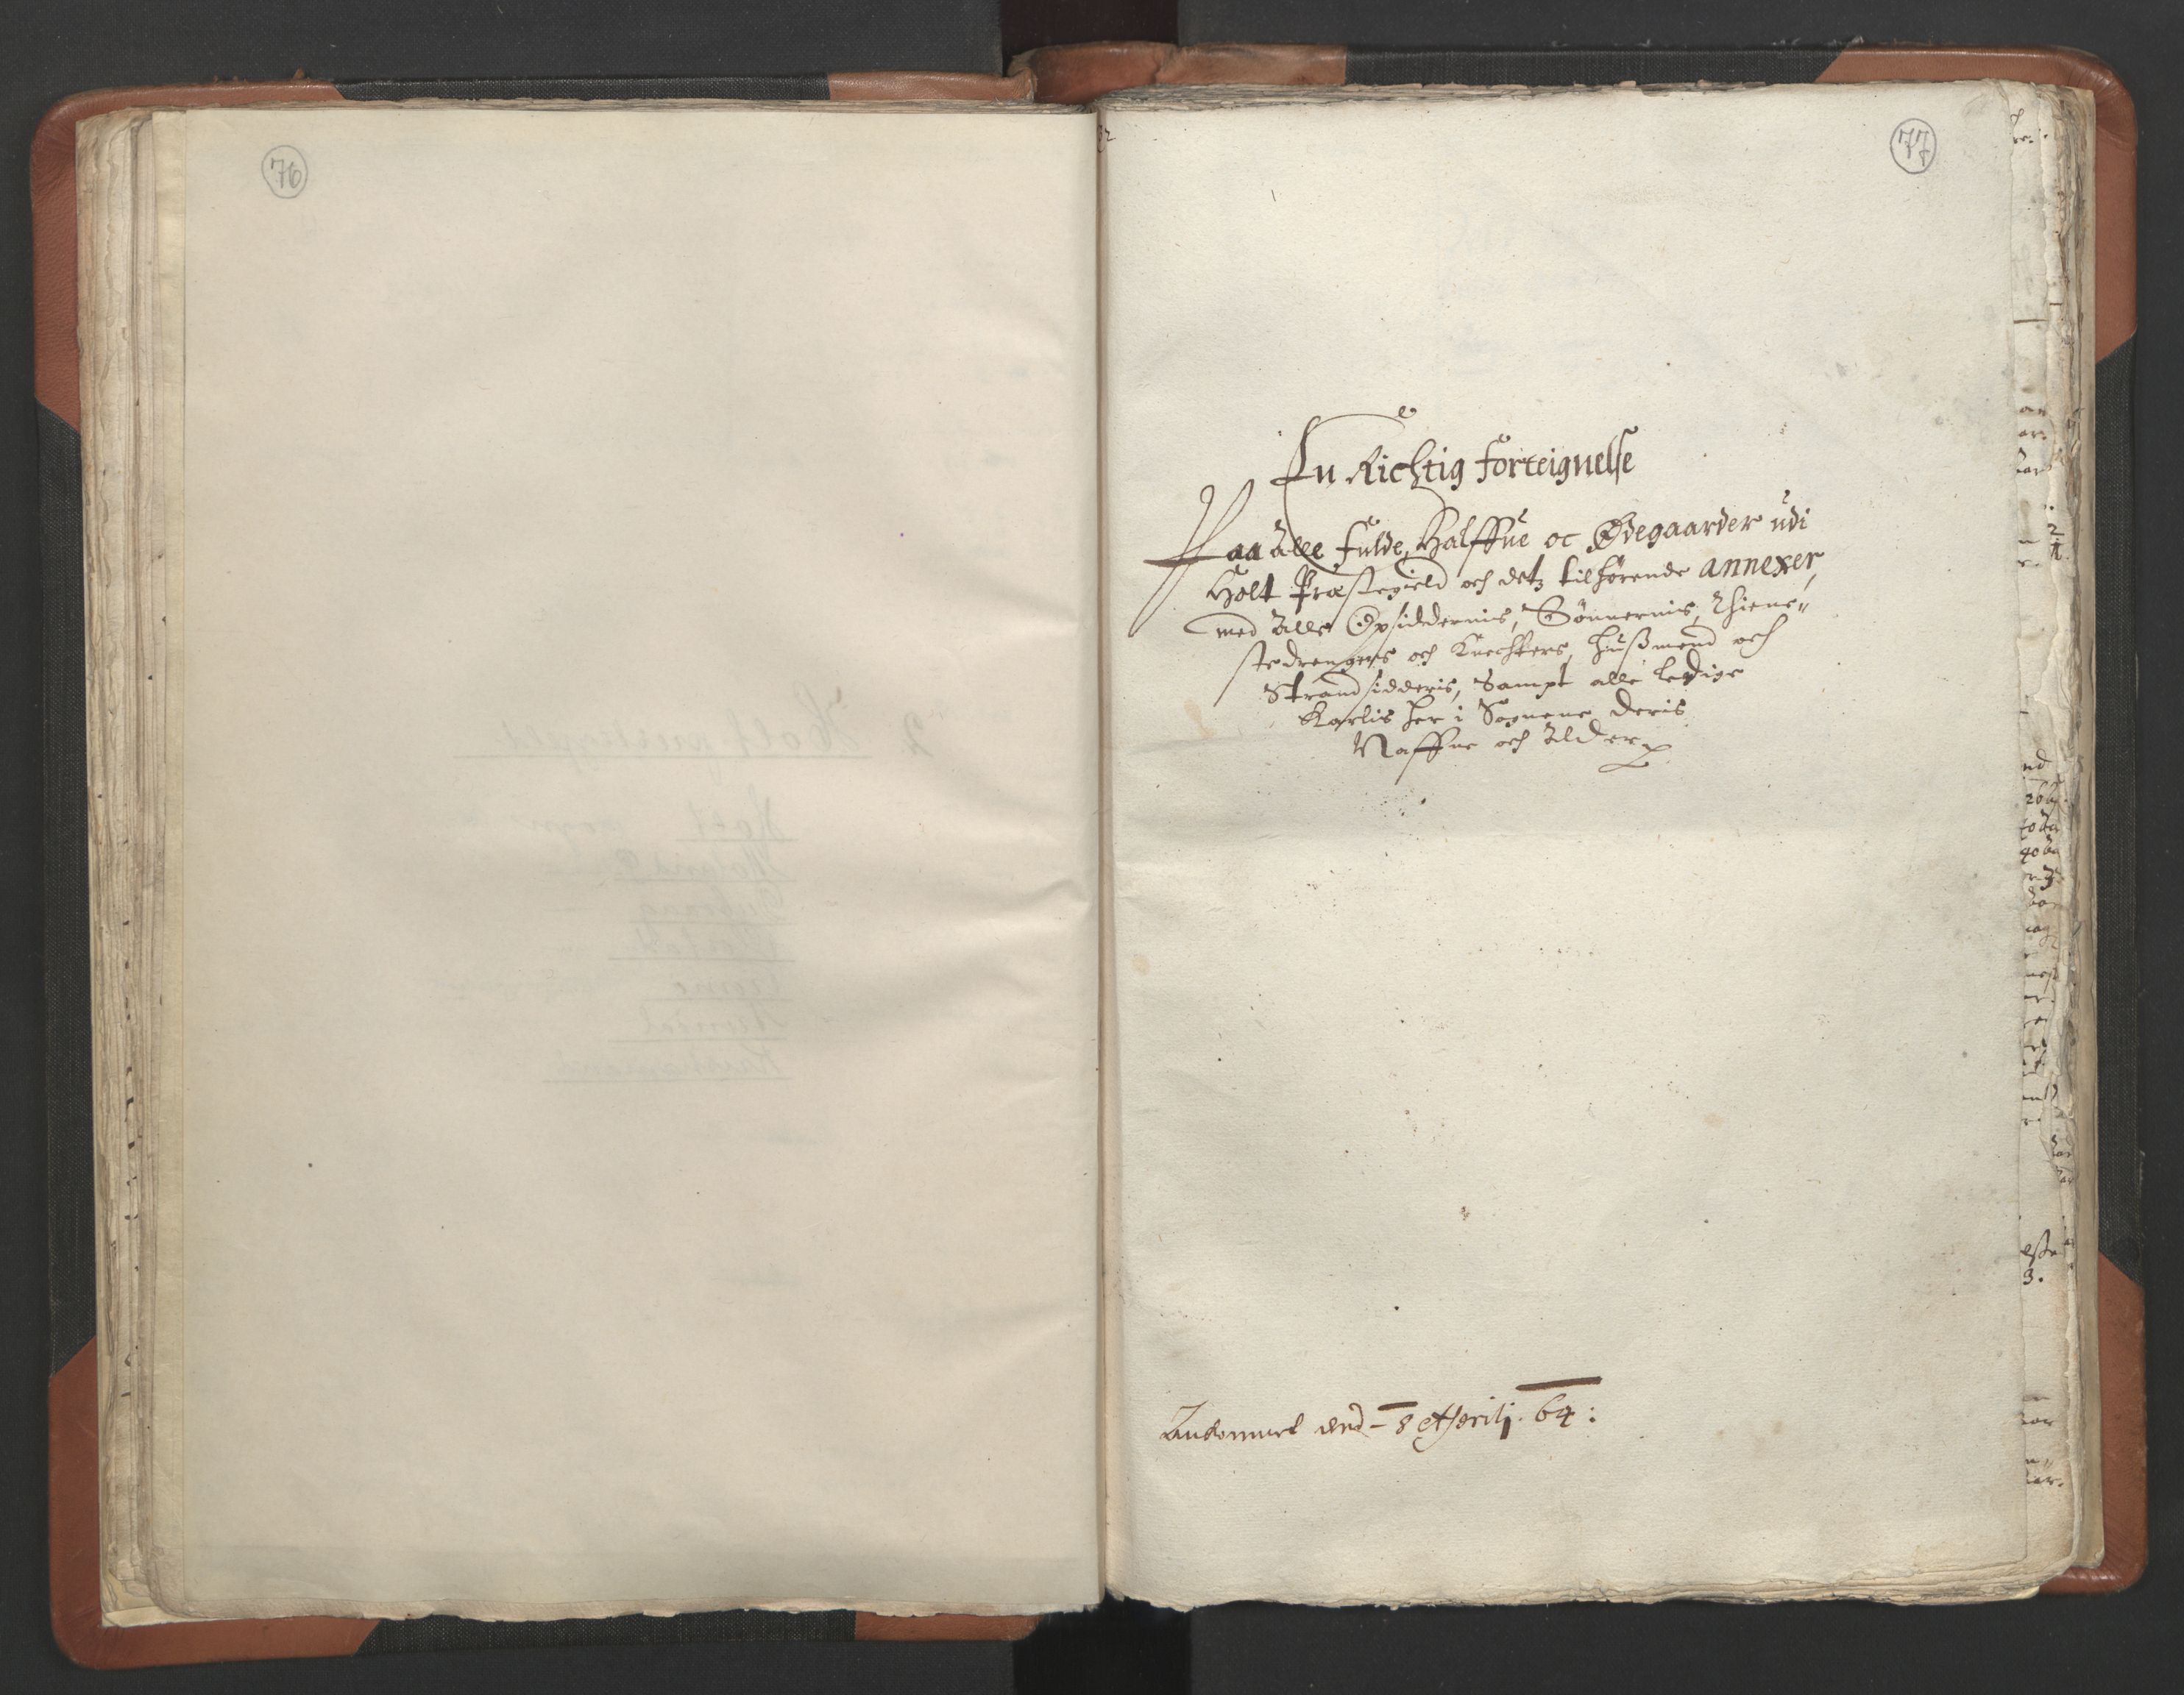 76
77
En Richtig Forteignelse
Paa Alle Fulde, Halffue oc Ødegaarder udi
Holt Præstegield och detz tilhørende annexer,
med Alle Opsiddernis, Sønnernis, Thiene-
stedrenges och Knechters, Hußmend och
Strandsidderis, Sampt alle ledige
Karlis her i Sognene deris
Naffne och Alder
Ankommet dend - 8 Aprilj. 64: